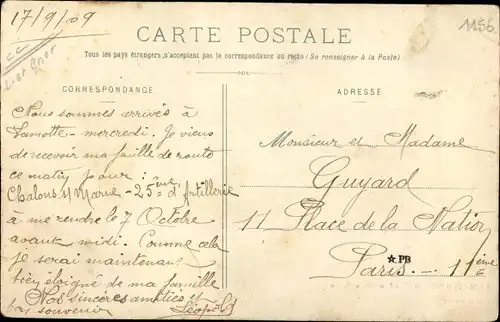 17/9/09
1156.
CARTE POSTALE
Tous les pays étrangers n'acceptent pas la correspondance au recto (Se renseigner à la Poste)
CORRESPONDANCE
ADRESSE
Nous sommes arrivés à
Lamotte - mercredi. Je viens
de recevoir ma feuille de route
ce matin pour:
Chalons s/ Marne - 25ème d'Artillerie
à me rendre le 7 Octobre
avant midi. Comme cela
je serai maintenant
bien éloigné de ma famille
Nos sincères amitiés et
bon souvenir Léopold
Monsieur et Madame
Guyard
11 Place de la Nation
Paris. - 11ème
*PB